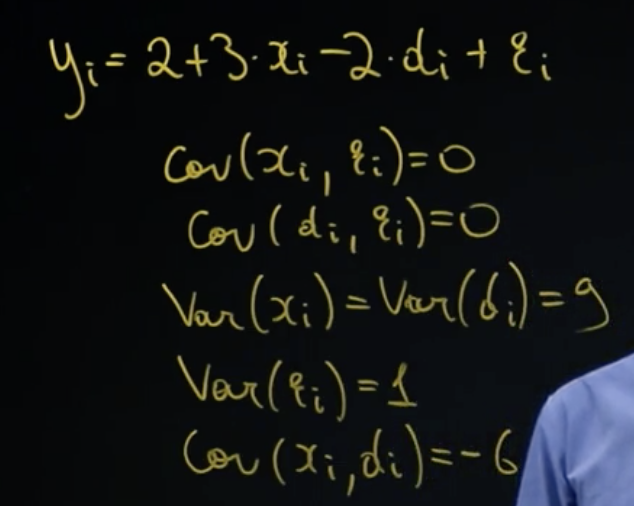 yᵢ = 2+3·xᵢ −2·dᵢ + εᵢ
Cov(xᵢ, εᵢ)=0
Cov(dᵢ, εᵢ)=0
Var(xᵢ)=Var(dᵢ)=9
Var(εᵢ)=1
Cov(xᵢ,dᵢ)=-6